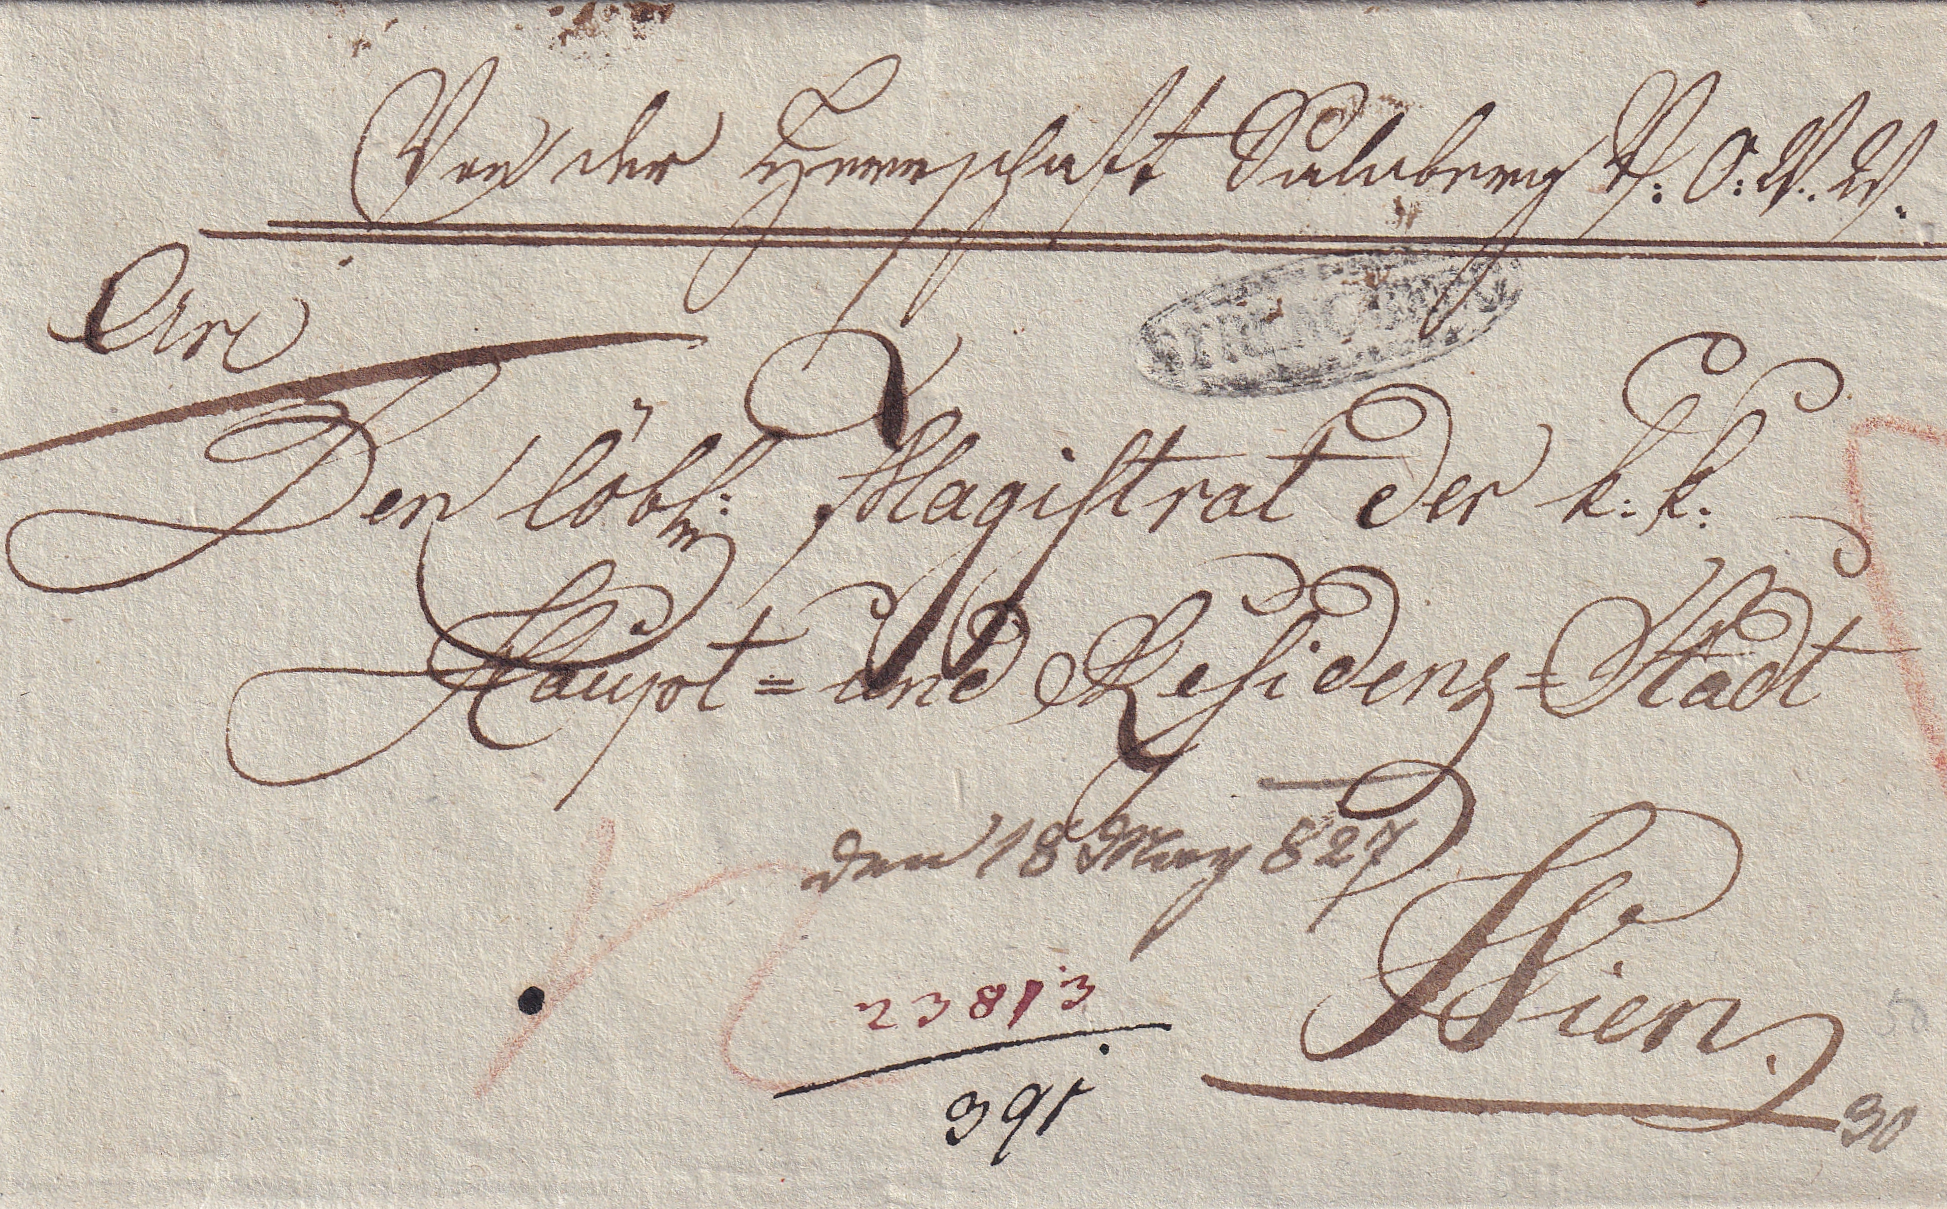 Von der Herrschaft Salaberg V. O. W. W.
An
STRENGBERG
Den löbl: Magistrat der k: k:
Haupt= und Residenz=Stadt
den 18 May 827
Wien.
23813
391
30
50